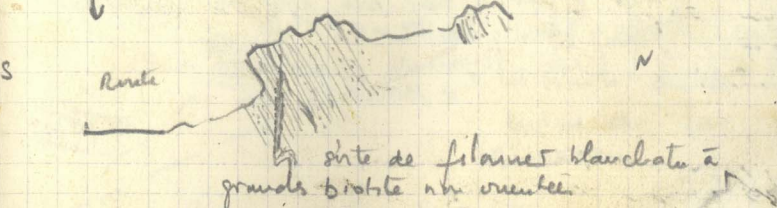 S
Route
N
sorte de filonnet blanchatre à
grandes biotite non orientées